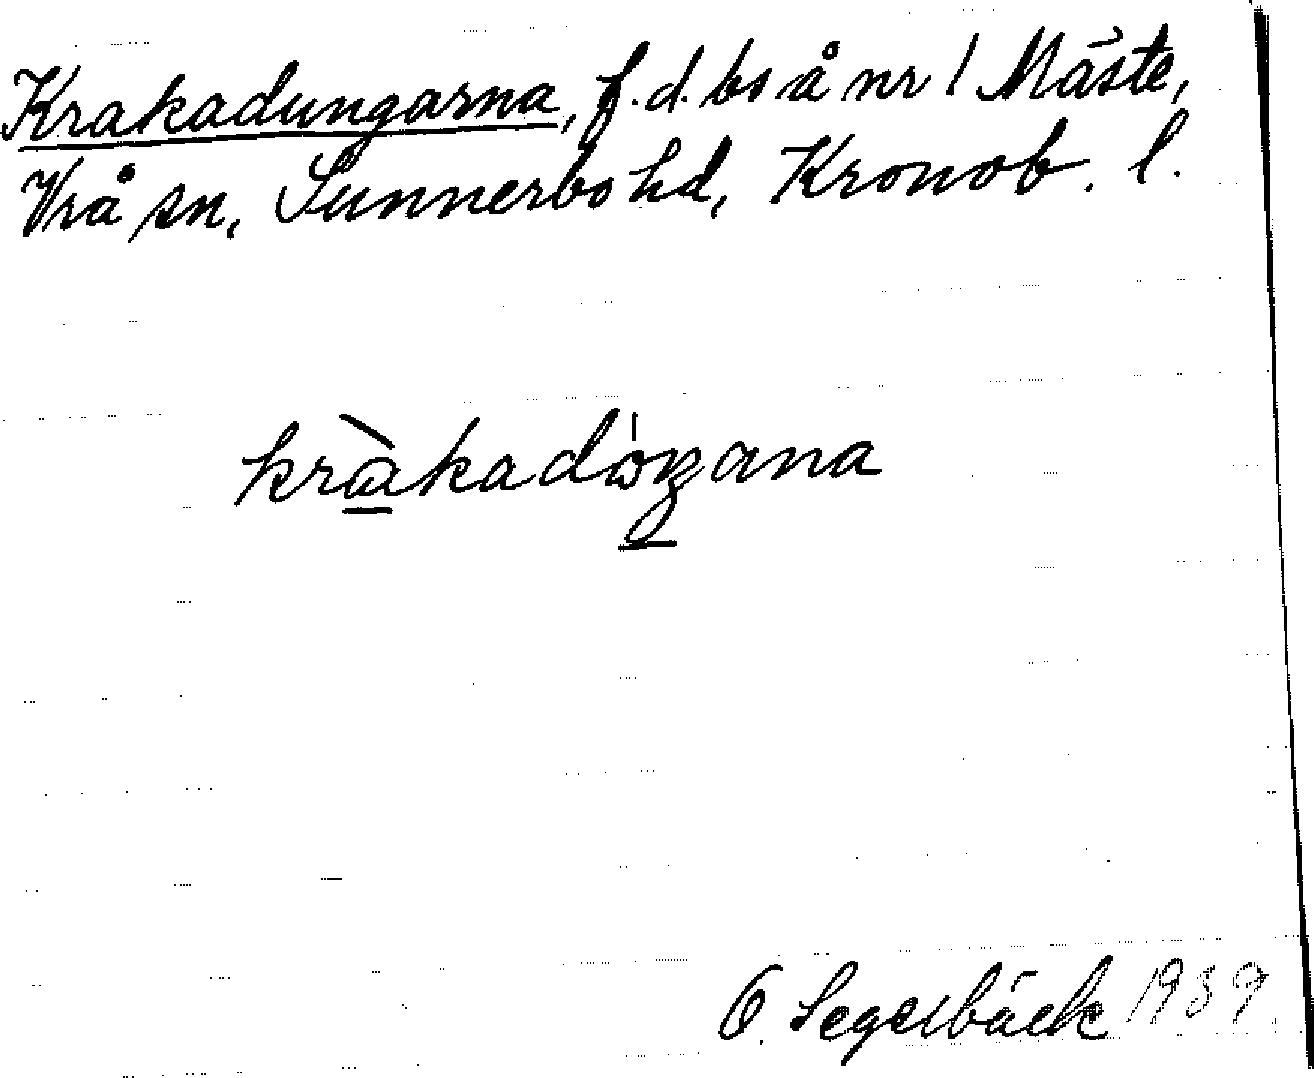 Krakadungarna, f.d. bs å nr 1 Mäste,
Vrå sn, Sunnerbo hd, Kronob. l.
kràkadóŋana
O. Segerbäck 1939